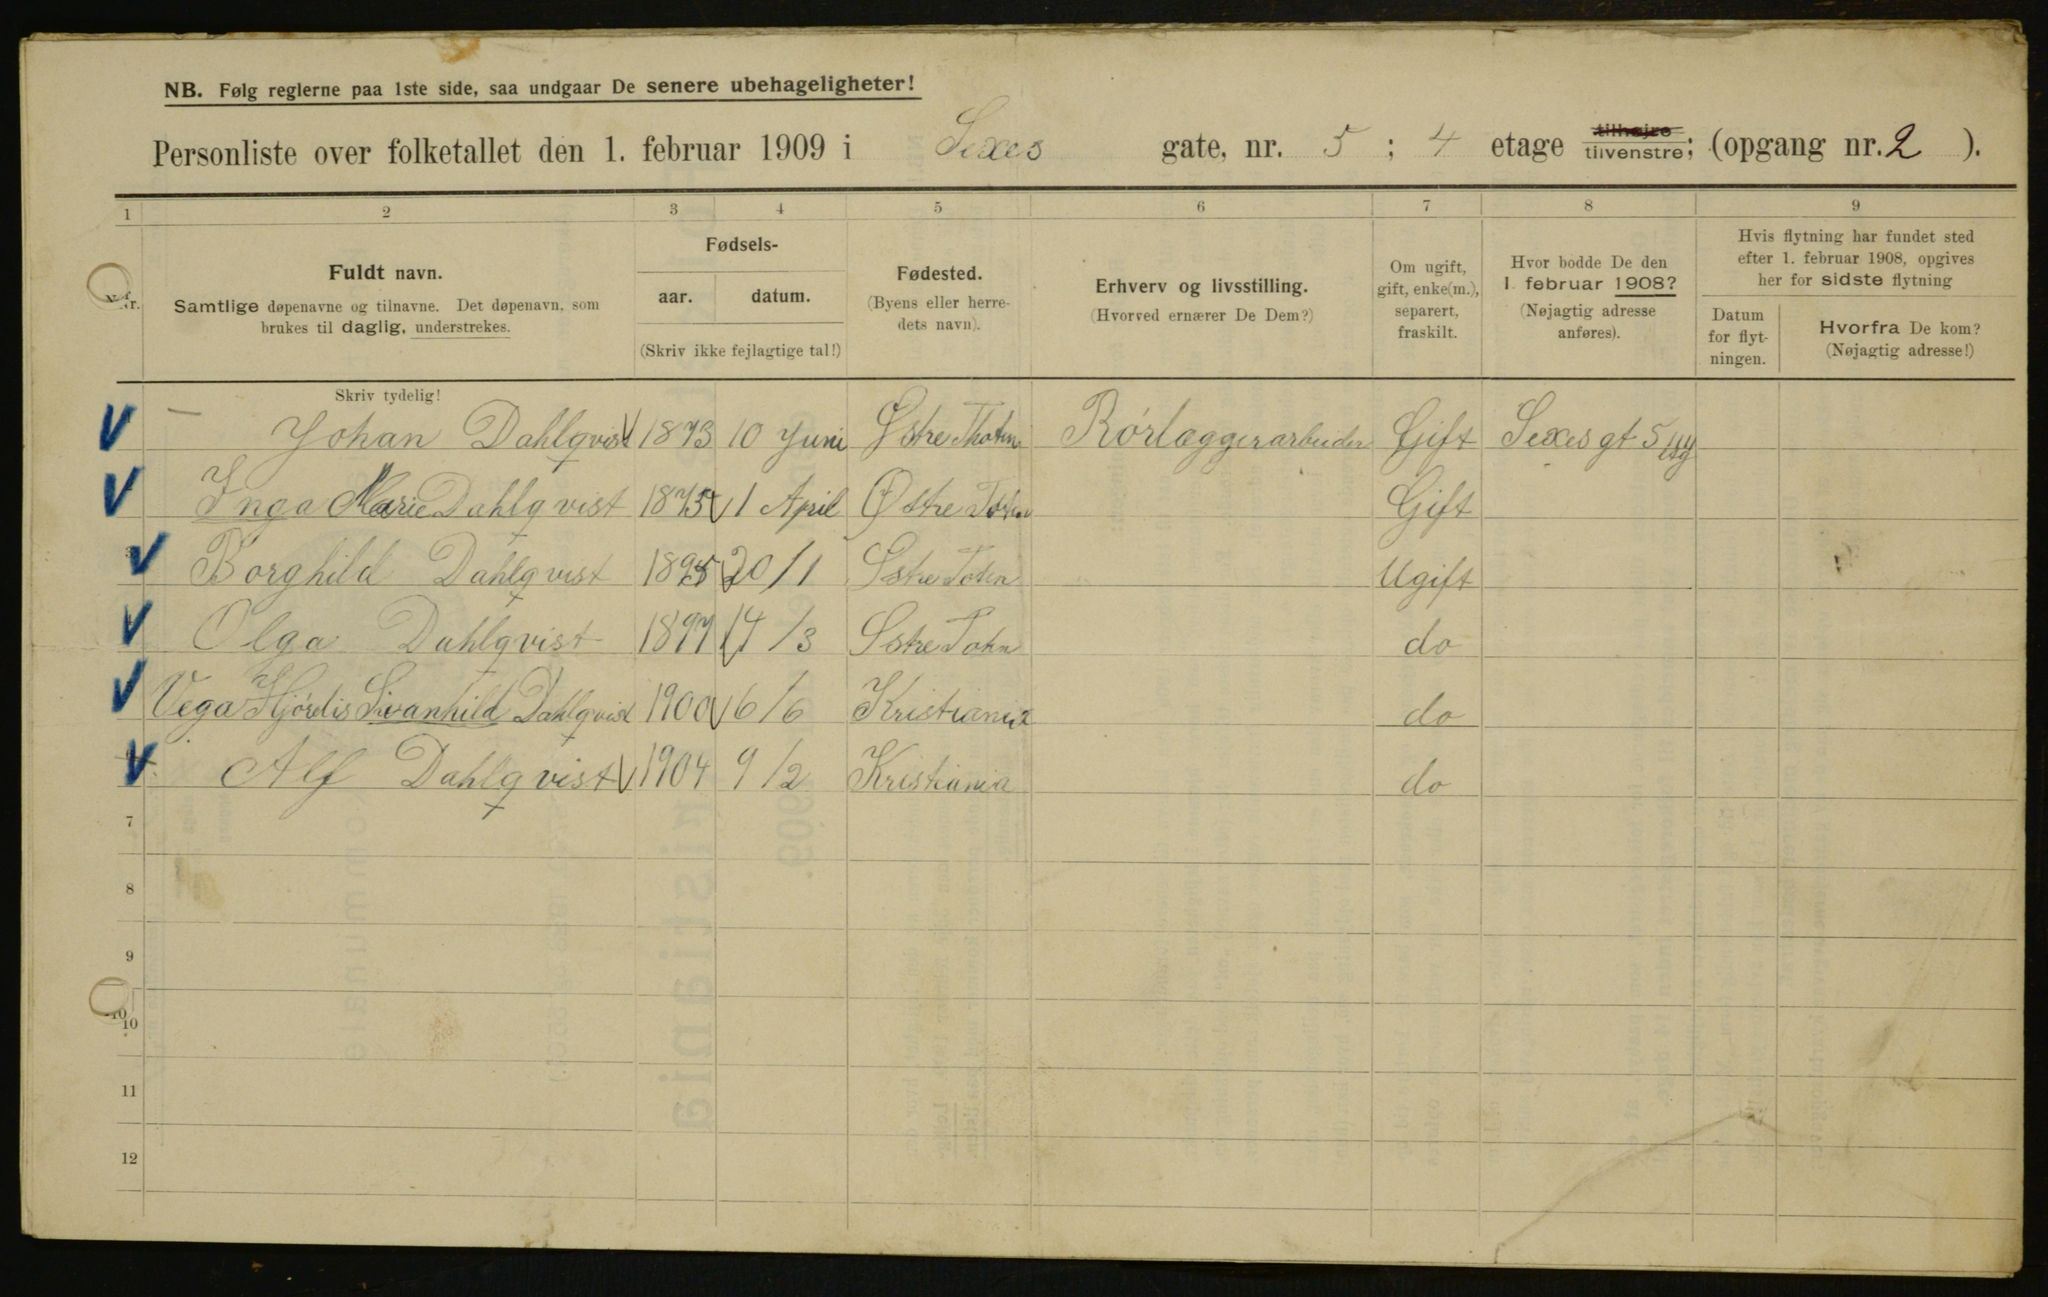 NB. Følg reglerne paa 1ste side, saa undgaar De senere ubehageligheter!
Personliste over folketallet den 1. februar 1909 i Sexes gate, nr. 5 ; 4 etage tilhøjre tilvenstre; (opgang nr. 2 ).
1 2 3 4 5 6 7 8 9
Nr.
Fuldt navn.
Samtlige døpenavne og tilnavne. Det døpenavn, som
brukes til daglig, understrekes.
Fødsels-
aar. datum.
(Skriv ikke fejlagtige tal!)
Fødested.
(Byens eller herre-
dets navn).
Erhverv og livsstilling.
(Hvorved ernærer De Dem?)
Om ugift,
gift, enke(m.),
separert,
fraskilt.
Hvor bodde De den
1. februar 1908?
(Nøjagtig adresse
anføres).
Hvis flytning har fundet sted
efter 1. februar 1908, opgives
her for sidste flytning
Datum
for flyt-
ningen.
Hvorfra De kom?
(Nøjagtig adresse!)
Skriv tydelig!
Johan Dahlqvist 1873 10 Juni Østre Thoten Rørlæggerarbeider Gift Sexes gt 5
Inga Marie Dahlqvist 1875 1 April Østre Toten Gift
Borghild Dahlqvist 1895 20/1 Østre Toten Ugift
Olga Dahlqvist 1897 14/3 Østre Toten do
Vega Hjørdis Svanhild Dahlqvist 1900 6/6 Kristiania do
Alf Dahlqvist 1904 9/2 Kristiania do
7
8
9
10
10
11
12